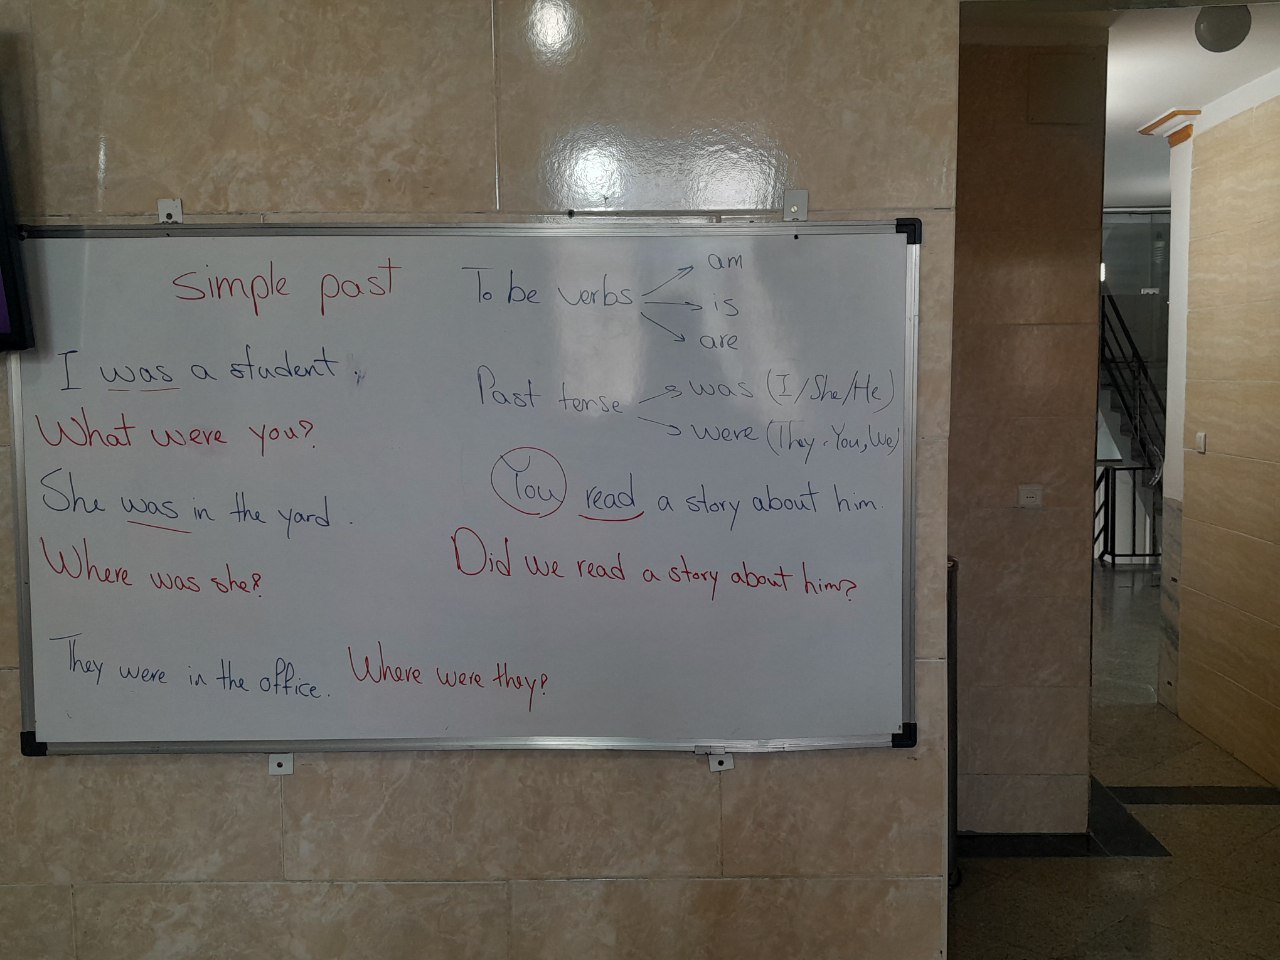 simple past
I was a student.
What were you?
She was in the yard.
Where was she?
They were in the office. Where were they?
To be verbs
am
is
are
Past tense
was (I/She/He)
were (They-You, We)
You read a story about him.
Did we read a story about him?